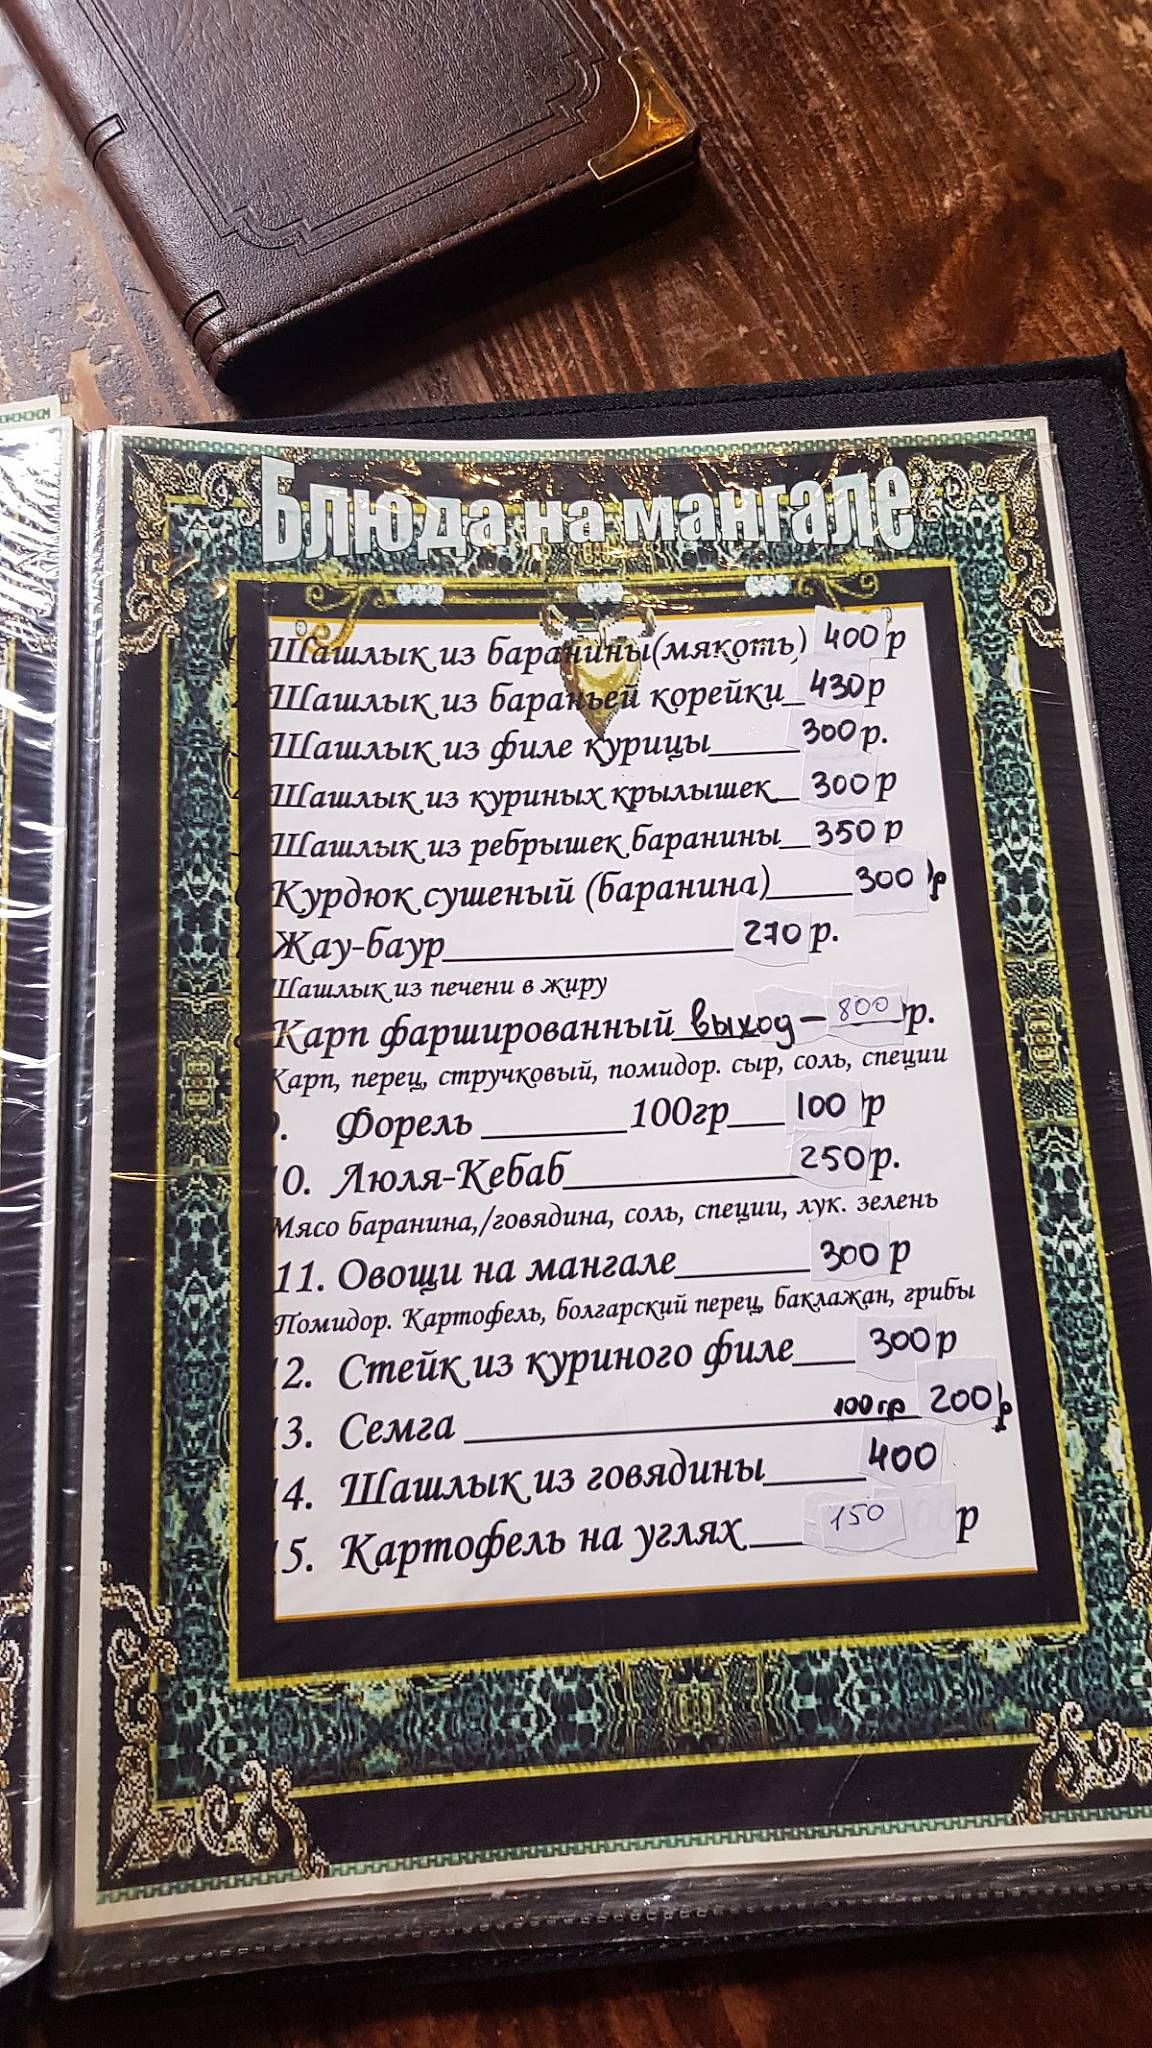 Блюда на мангале
Шашлык из баранины(мякоть) 400 р
Шашлык из бараньей корейки_ 430 р
Шашлык из филе курицы_____300 р.
Шашлык из куриных крылышек_ 300 р
Шашлык из ребрышек баранины_ 350 р
Курдюк сушеный (баранина)____300 р
Жау-баур________________270 р.
Шашлык из печени в жиру
Карп фаршированный выход - 800 р.
Карп, перец, стручковый, помидор. сыр, соль, специи
. Форель ________100гр___ 100 р
0. Люля-Кебаб_____________250 р.
Мясо баранина,/говядина, соль, специи, лук. зелень
11. Овощи на мангале_______ 300 р
Помидор. Картофель, болгарский перец, баклажан, грибы
2. Стейк из куриного филе___ 300 р
3. Семга ____________________ 100 гр 200 р
4. Шашлык из говядины_____400
5. Картофель на углях___ 150 р